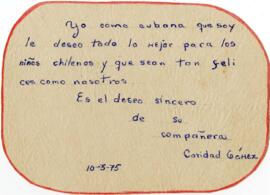 Yo como cubana que soy
le deseo todo lo mejor para los
niños chilenos y que sean tan feli
ces como nosotros.
Es el deseo sincero
de su
compañera
Caridad Gómez
10-3-75